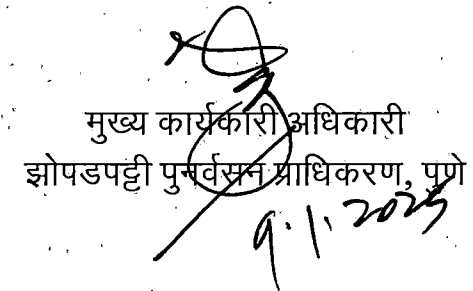 मुख्य कार्यकारी अधिकारी
झोपडपट्टी पुनर्वसन प्राधिकरण, पुणे
9.1.2025